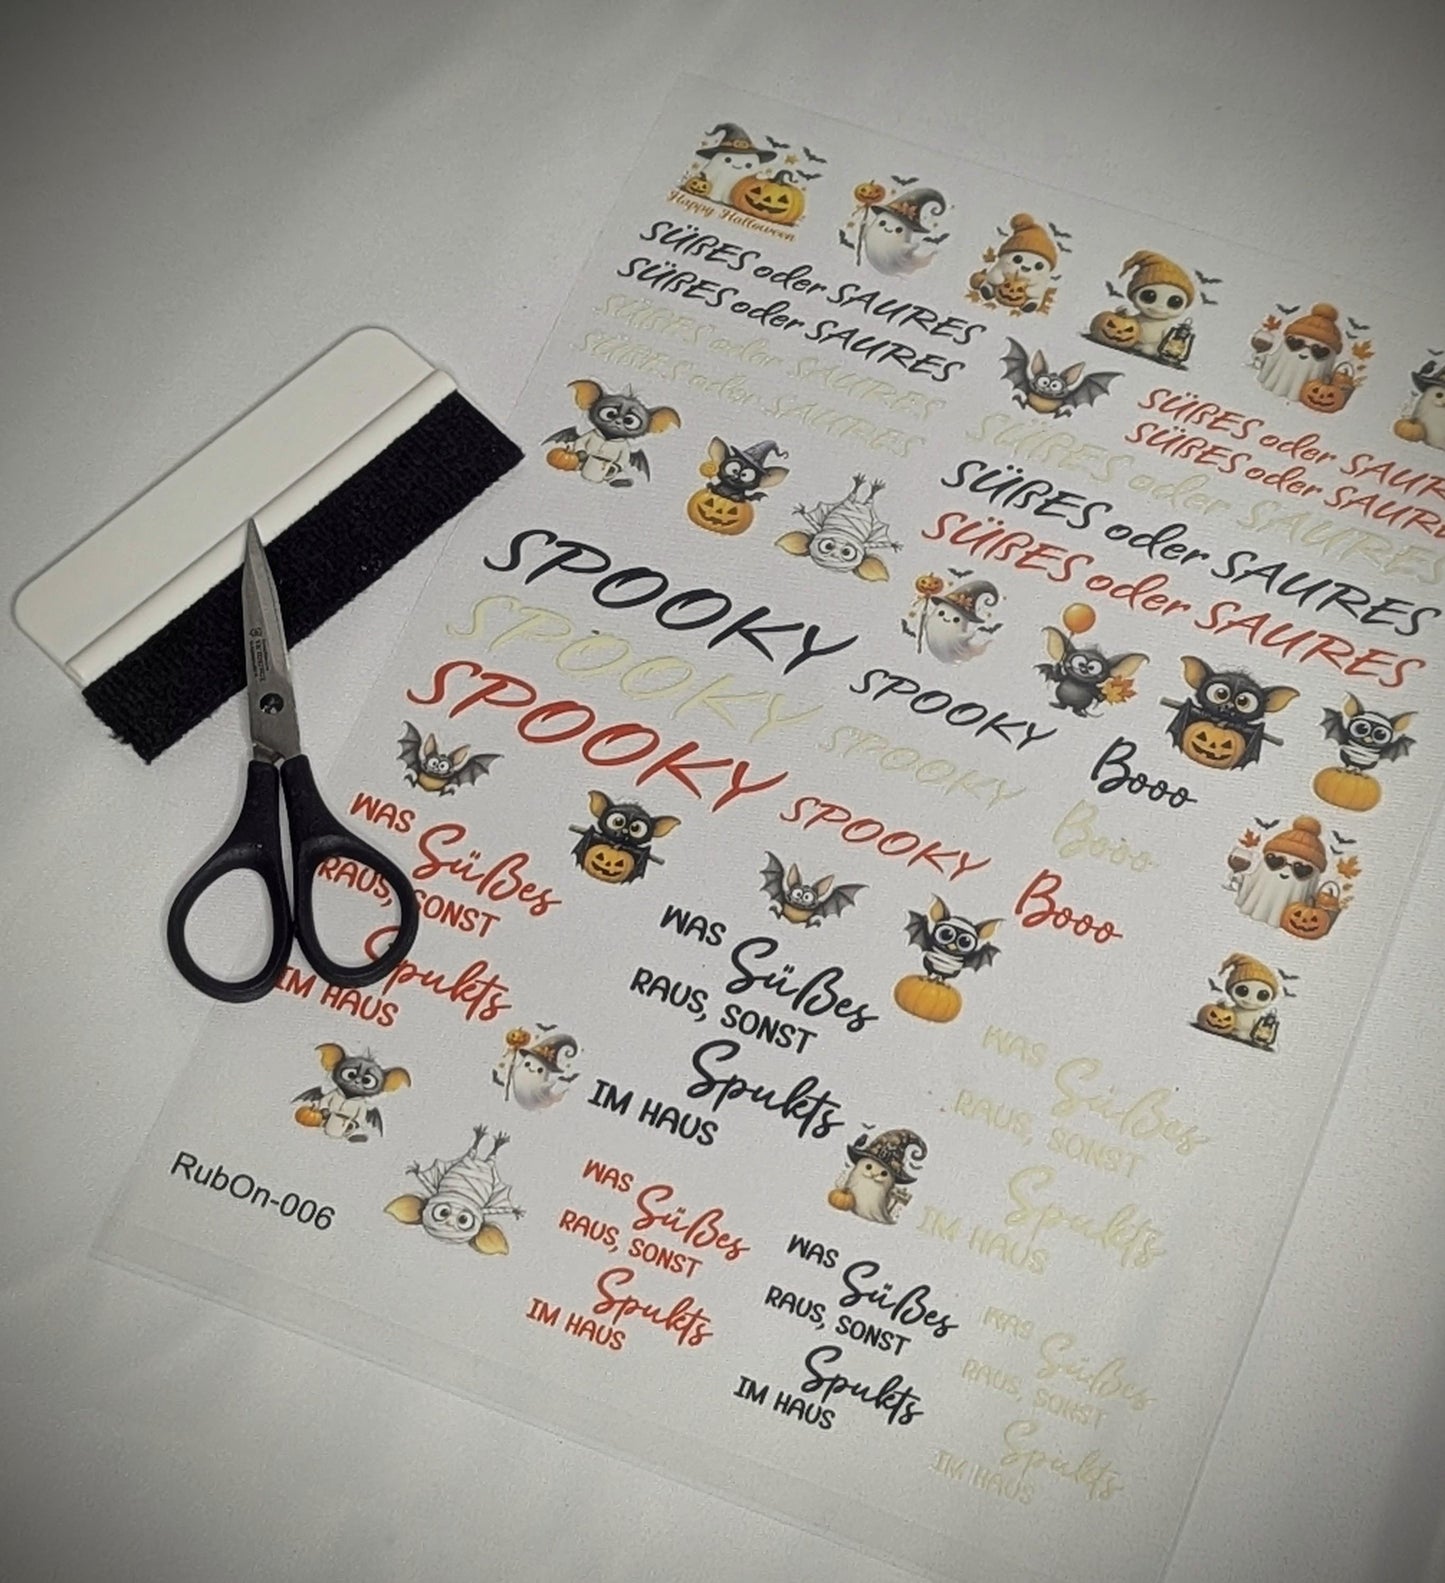 Happy Halloween
SÜßES oder SAURES
SÜßES oder SAURES
SÜßES oder SAURES
SÜßES oder SAURES
SÜßES oder SAUR
SÜßES oder SAUR
SÜßES oder SAURES
SÜßES oder SAURES
SÜßES oder SAURES
SPOOKY
SPOOKY
SPOOKY
SPOOKY
SPOOKY
SPOOKY
Booo
Booo
Booo
WAS Süßes
RAUS, SONST
Spukts
IM HAUS
WAS Süßes
RAUS, SONST
Spukts
IM HAUS
WAS Süßes
RAUS, SONST
Spukts
IM HAUS
RubOn-006
WAS Süßes
RAUS, SONST
Spukts
IM HAUS
WAS Süßes
RAUS, SONST
Spukts
IM HAUS
WAS Süßes
RAUS, SONST
Spukts
IM HAUS